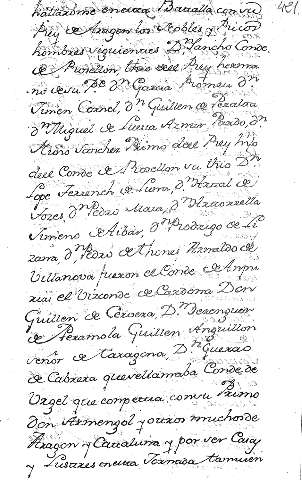 481.
hallaronse en esta Batalla con su
Rey de Aragon los Nobles y Ricos
hombres siguientes Dn. Sancho Conde
de Rosellon, thio del Rey herma
no de su Pe. dn. Garcia Romeu dn.
Simen Cornel, dn. Guillen de Peralta
dn. Miguel de Luesia Aznar Pardo, dn.
Nuño Sanchez Primo del Rey hijo
del Conde de Rosellon su thio Dn.
Lope Ferrench de Luna, dn. Artal de
Fozes, dn. Pedro Maza, dn.
Ximeno de Aibar, dn. Rodrigo de Li
zana, dn. Pedro de Ahones Arnaldo de
Villanova fueron el Conde de Ampu
rias el Vizconde de Cardona Don
Guillen de Cervera, Dn. Berenguer
de Peramola Guillen Anguillon
señor de Taragona, Dn. Guerao
de Cabrera que se llamaba Conde de
Urgel que competia con su Primo
Don Armengol y otros muchos de
Aragon y Cataluña y por ser Casas
y Lustres en esta Jornada tambien